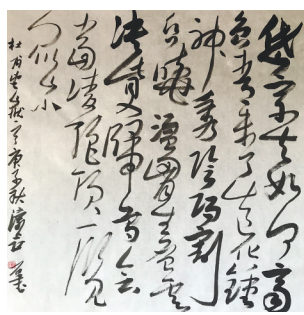 岱宗夫如何齊
魯青未了造化鍾
神秀陰陽割
昏曉盪胸生層雲
決眥入歸鳥會
當凌絕頂一覽
眾山小
杜甫望嶽 庚子秋 書